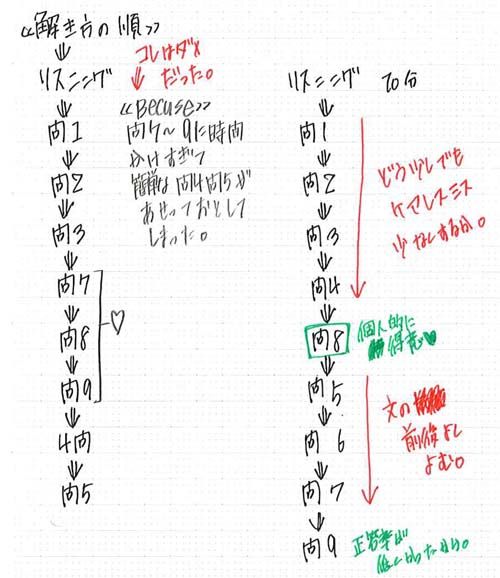 ≪解き方の順≫
リスニング
問1
問2
問3
問7
問8
問9
4問
問5
♡
コレはダメ
だった。
≪Becuse≫
問7〜9に時間
かけすぎて
簡単な問4問5が
あせっておとして
しまった。
リスニング 20分
問1
問2
問3
問4
問8
問5
問6
問7
問9
どう少しでも
ケアレスミス
少なくするか。
個人的に
得意♥
文の
前後よく
よむ。
正答率が
低かったから。